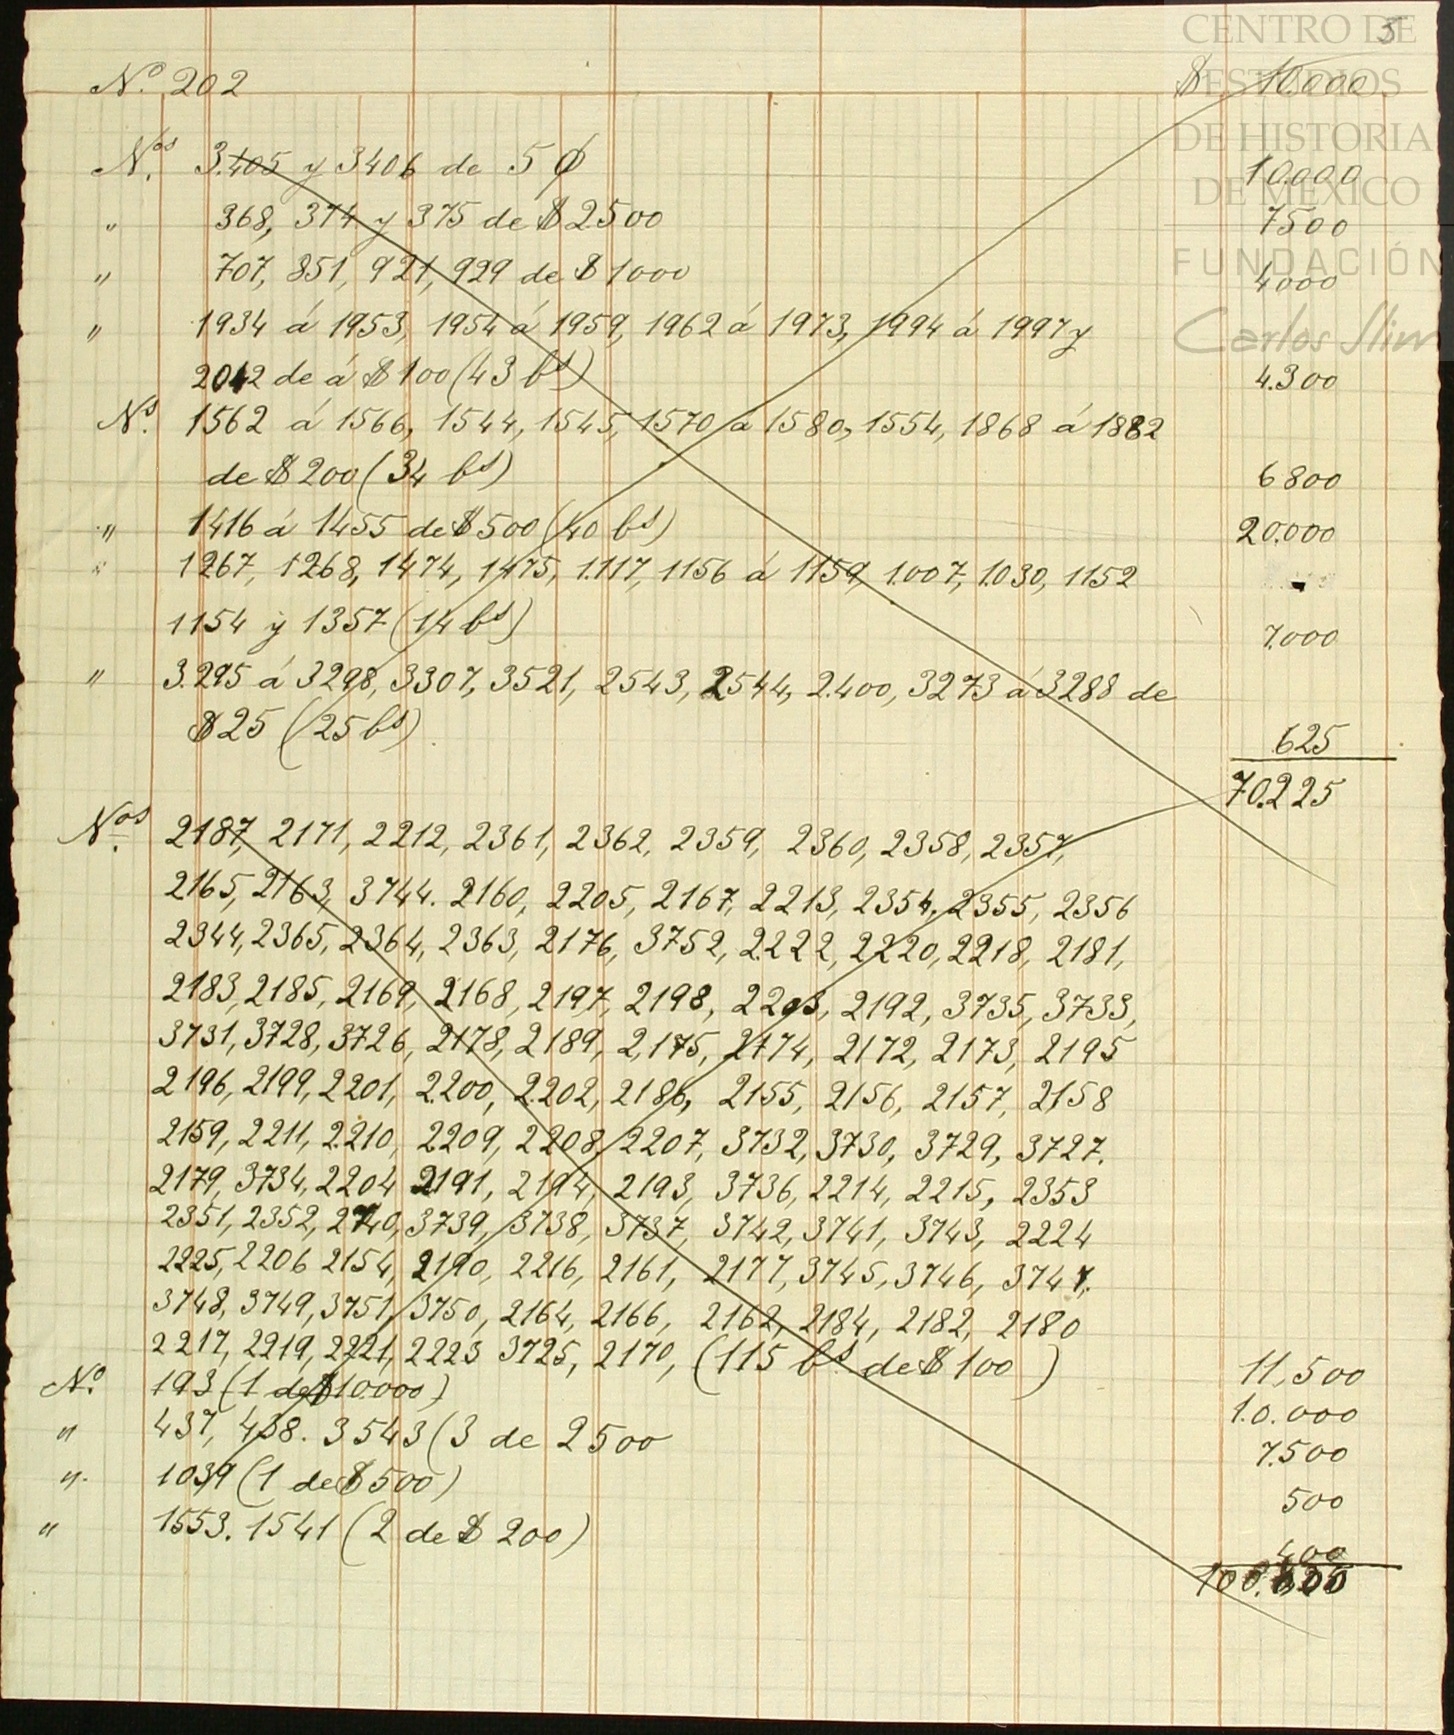 CENTRO DE
ESTUDIOS
DE HISTORIA
DE MÉXICO
FUNDACIÓN
Carlos Slim
5
Nº 202 $ 10.000
Nos. 3.405 y 3406 de 5 ₵ 10.000
" 368, 374 y 375 de $ 2500 7500
" 707, 851, 921, 929 de $ 1000 4000
" 1934 á 1953, 1954 á 1959, 1962 á 1973, 1994 á 1997 y
2012 de á $ 100 (43 bs) 4.300
Ns. 1562 á 1566, 1544, 1545, 1570 á 1580, 1554, 1868 á 1882
de $ 200 (34 bs) 6800
" 1416 á 1455 de $ 500 (40 bs) 20.000
" 1267, 1268, 1474, 1475, 1.117, 1156 á 1159, 1.007, 1.030, 1152
1154 y 1357 (14 bs) 7.000
" 3.295 á 3298, 3307, 3521, 2543, 2544, 2.400, 3273 á 3288 de
$ 25 (25 bs) 625
70.225
Nos. 2187, 2171, 2212, 2361, 2362, 2359, 2360, 2358, 2357,
2165, 2163, 3744. 2160, 2205, 2167, 2213, 2354, 2355, 2356
2344, 2365, 2364, 2363, 2176, 3752, 2222, 2220, 2218, 2181,
2183, 2185, 2169, 2168, 2197, 2198, 2203, 2192, 3735, 3733,
3731, 3728, 3726, 2178, 2189, 2,175, 2174, 2172, 2173, 2195
2196, 2199, 2201, 2200, 2202, 2186, 2155, 2156, 2157, 2158
2159, 2211, 2210, 2209, 2208, 2207, 3732, 3730, 3729, 3727.
2179, 3734, 2204 2191, 2194, 2193, 3736, 2214, 2215, 2353
2351, 2352, 2740, 3739, 3738, 3737, 3742, 3741, 3743, 2224
2225, 2206 2154, 2190, 2216, 2161, 2177, 3745, 3746, 3747.
3748, 3749, 3751, 3750, 2164, 2166, 2162, 2184, 2182, 2180
2217, 2219, 2221, 2223 3725, 2170, (115 bs de $ 100) 11,500
Nº. 193 (1 de $ 10.000) 10.000
" 437, 438. 3543 (3 de 2500 7.500
". 1039 (1 de $ 500) 500
" 1553. 1541 (2 de $ 200) 400